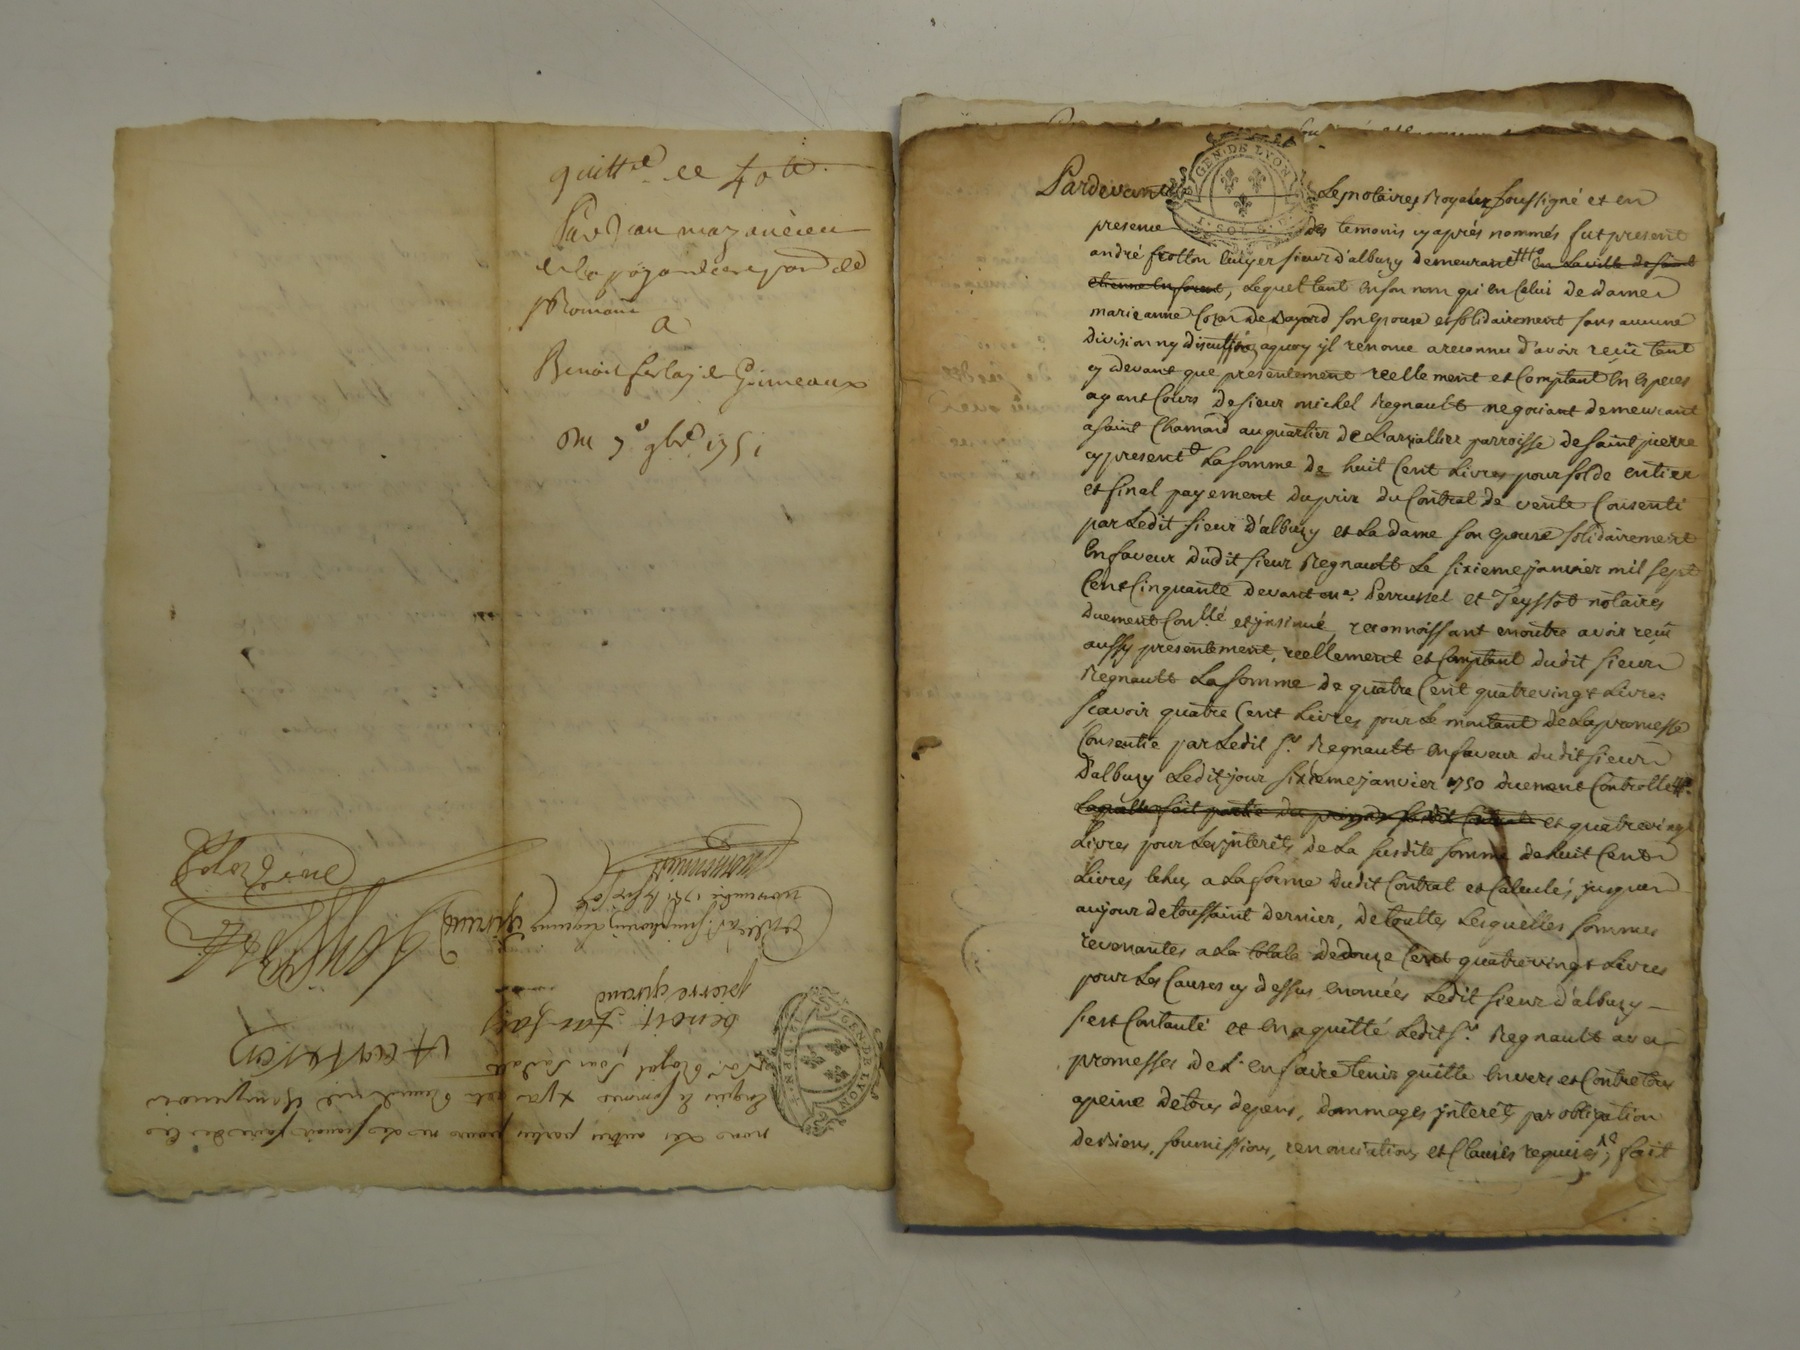 quitt.e de 40 tt
Par Jean mazancieu
de la
romain
a
Benoit farlay de Grimeaux
Du 7.e 9bre 1751
nous Les autres parties pour ne le scavoir faire de ce
Enquis
N.re Royal Soussigné
benoit far lay
pierre giraud
giraud
novembre 1751
GEN. DE LYON
Pardevant Les notaires Royaux soussigné et en
presence des temoins cy aprés nommés fut present
andré frotton Ecuyer sieur d'albuzy demeurant en La ville de saint
etienne en forest, Lequel tant en son nom qu'en Celui de dame
marieanne Cozon de Bayard son Epouse et solidairement sans aucune
division ny discution, aquoy yl renonce a reconnu d'avoir reçu tant
cy devant que presentement reellement et Comptant En Especes
ayant Cours de sieur michel Regnault negociant demeurant
a saint Chamond au quartier de Larzallier parroisse de saint pierre
cy present La somme de huit Cent Livres pour solde entier
et final payement du prix du Contrat de vente Consenti
par Ledit sieur D'albuzy et La dame son epouse solidairement
En faveur dudit sieur Regnault Le sixieme janvier mil sept
Cent Cinquante devant me. Perrussel et Teyssot notaires
duement Con.llé et ynsinué, reconnoissant enoutre avoir reçu
aussy presentement, reellement et Comptant dudit sieur
Regnault La somme de quatre Cent quatrevingt Livres
scavoir quatre Cent Livres pour Le montant de La promesse
Consentie par Ledit s.r Regnault En faveur dudit sieur
D'albuzy Ledit jour sixieme janvier 1750 duement Controllé
Laquelle fait partie du prix du susdit Contrat et quatrevingt
Livres pour Les ynterêts de La susdite somme de huit Cent
Livres Echus a La forme dudit Contrat et Calculés jusques
au jour de toussaint dernier, de touttes Lesquelles sommes
revenantes a La totale de douze Cent quatrevingt Livres
pour Les Causes cy dessus enoncées Ledit sieur D'albuzy
s'est Contanté et En a quitté Ledit s.r Regnault avec
promesses de L'en faire tenir quitte Envers et Contre tous
apeine de tous depens, dommages ynterêt par obligation
de biens, soumissions, renonciations et Clauses requises; fait